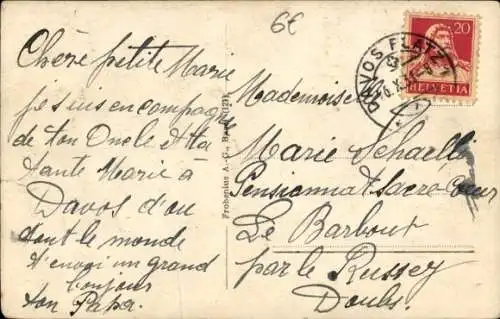 6€
Chère petite Marie
je suis en compagnie
de ton Oncle et ta
tante Marie à
Davos d'ou
tout le monde
t'envoi un grand
bonjour
ton Papa.
Frobenius A.-G., Basel
DAVOS PLATZ 1
20
HELVETIA
Mademoiselle
Marie Schaelli
Pensionnat Sacré-Coeur
Le Barbout
par le Russey
Doubs.